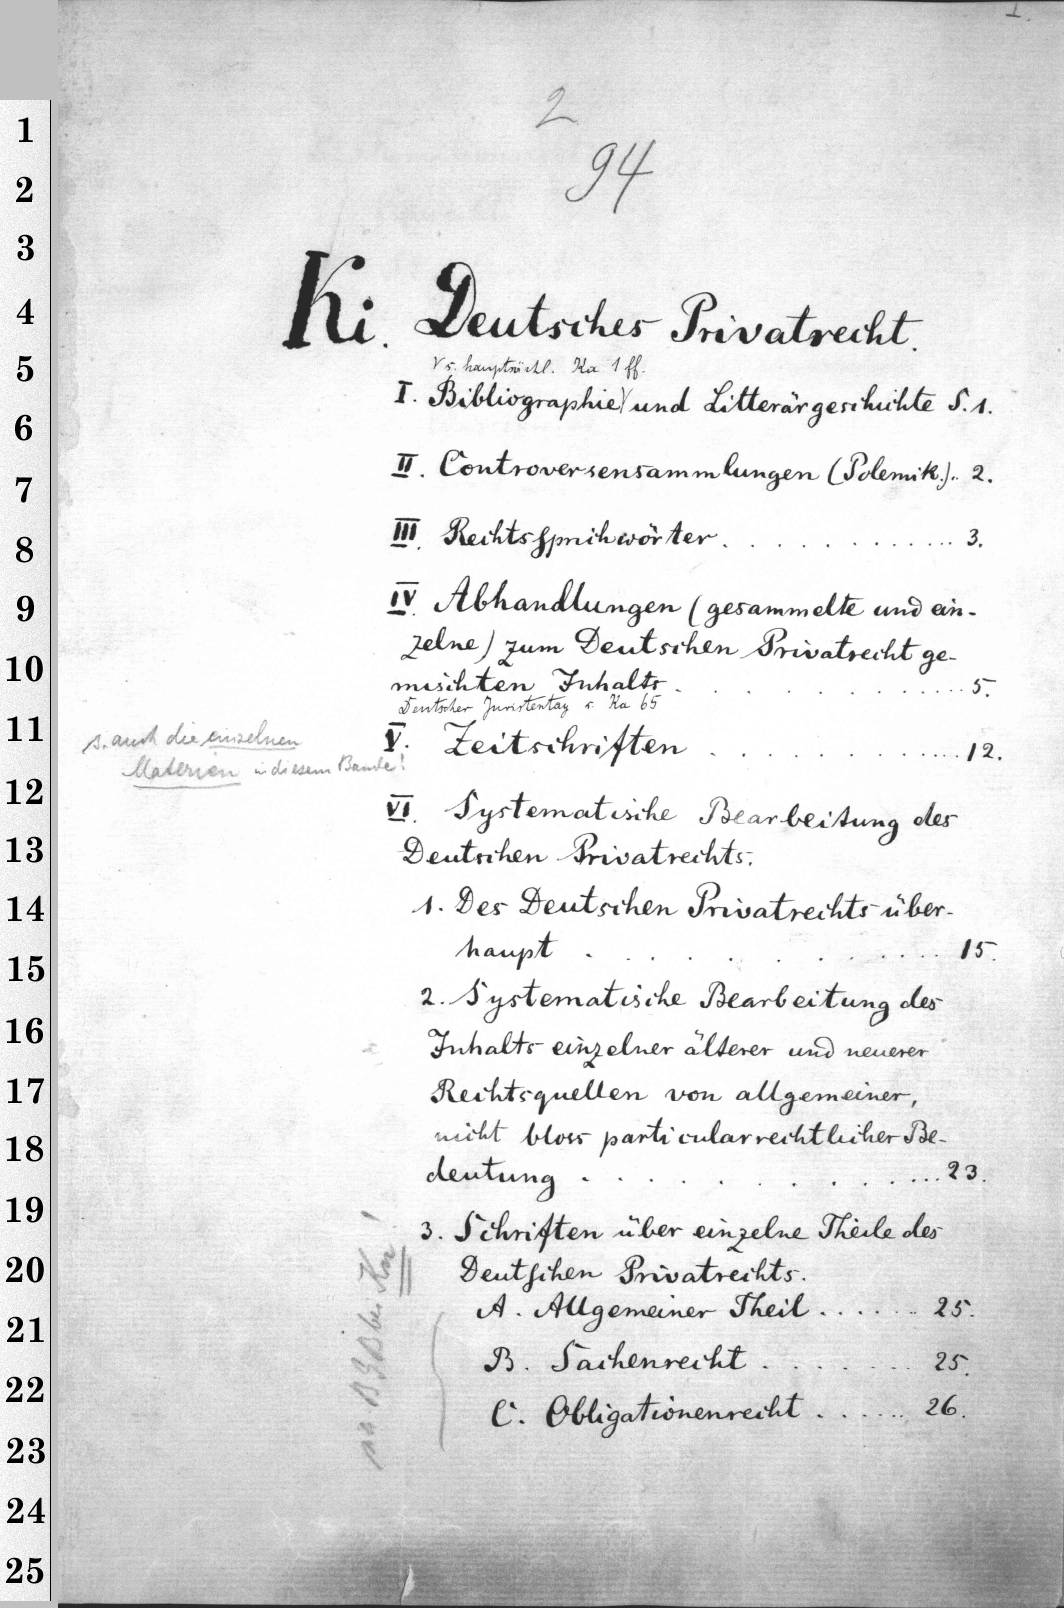 I.
2
94
Ki. Deutsches Privatrecht.
s. hauptsächl. Ka 1 ff.
I. Bibliographie und Litterärgeschichte S. 1.
II. Controversensammlungen (Polemik.).. 2.
III. Rechtssprichwörter . . . . . . . . . . . . 3.
IV. Abhandlungen (gesammelte und ein-
zelne) zum Deutschen Privatrecht ge-
mischten Inhalts . . . . . . . . . . . . 5.
Deutscher Juristentag s. Ka 65
V. Zeitschriften . . . . . . . . . . . 12.
s. auch die einzelnen
Materien in diesem Bande!
VI. Systematische Bearbeitung des
Deutschen Privatrechts.
1. Des Deutschen Privatrechts über-
haupt . . . . . . . . . . . . 15.
2. Systematische Bearbeitung des
Inhalts einzelner älterer und neuerer
Rechtsquellen von allgemeiner,
nicht bloss particularrechtlicher Be-
deutung . . . . . . . . . . . . 23.
3. Schriften über einzelne Theile des
Deutschen Privatrechts.
A. Allgemeiner Theil . . . . . . 25.
B. Sachenrecht . . . . . . . . 25.
C. Obligationenrecht . . . . . . 26.
BGB bei
1
2
3
4
5
6
7
8
9
10
11
12
13
14
15
16
17
18
19
20
21
22
23
24
25